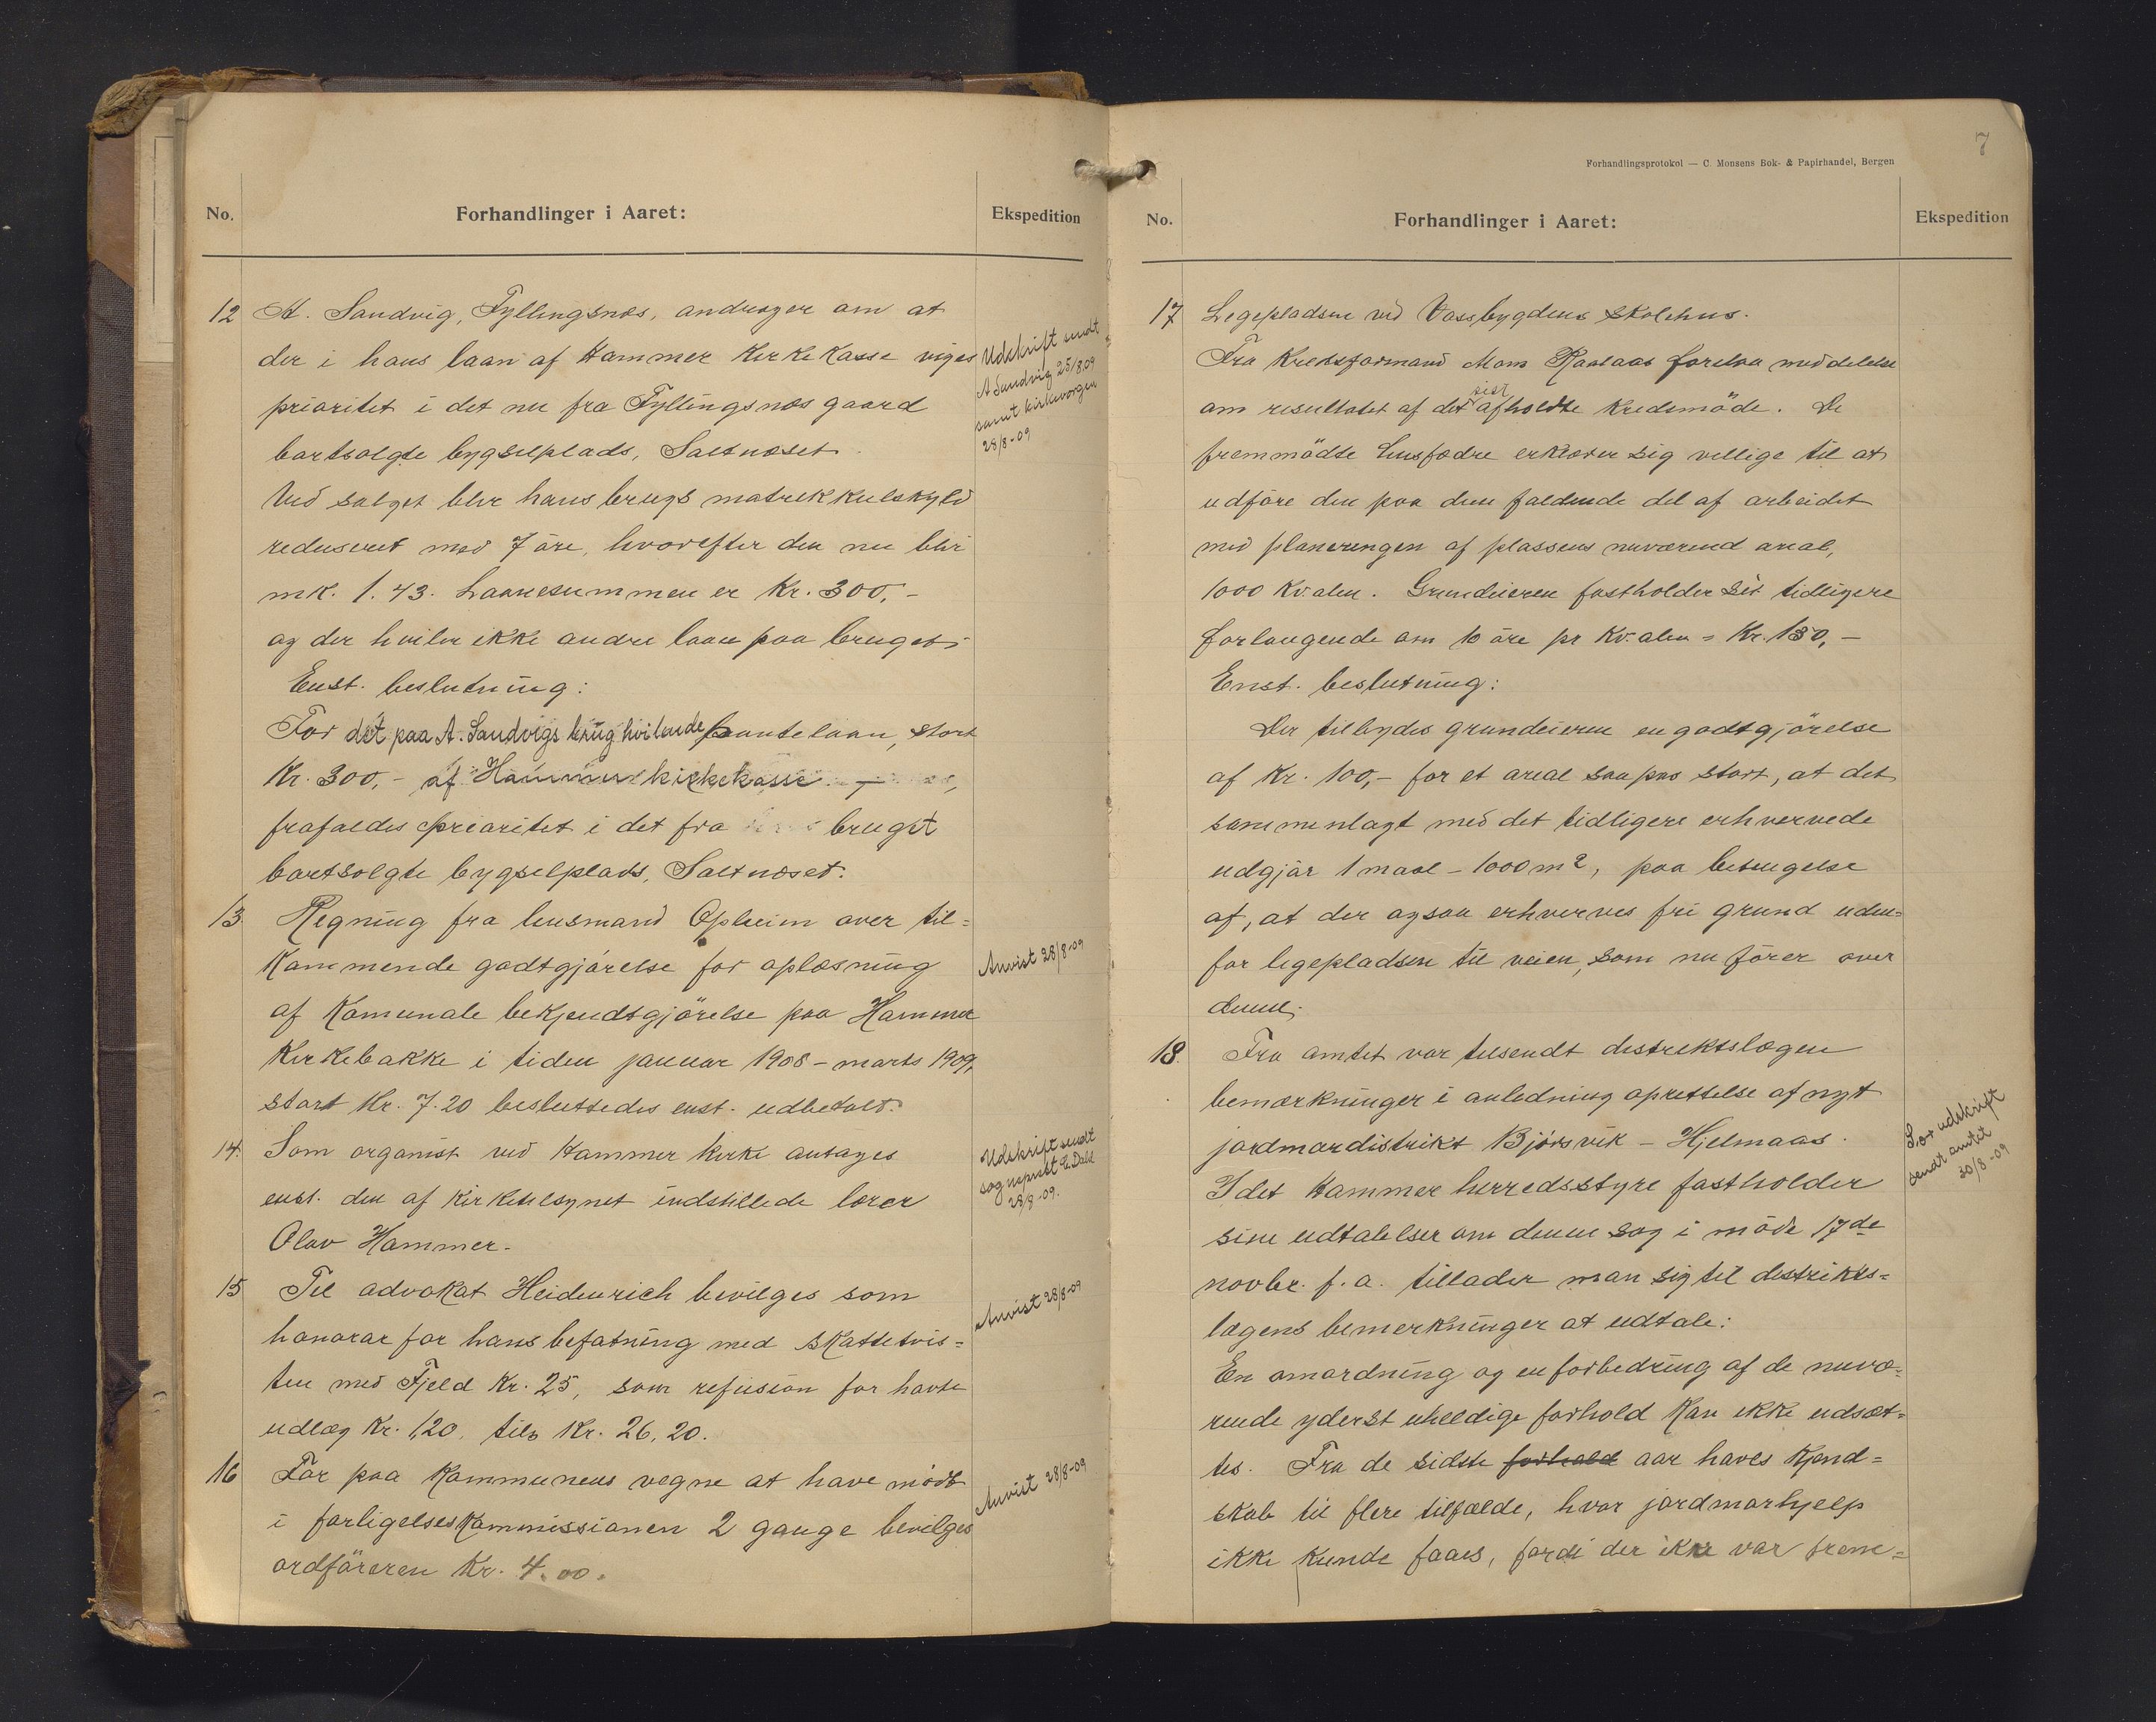 No.
Forhandlinger i Aaret:
Ekspedition
12 A. Sandvig, Fyllingsnæs, andrager om at
der i hans laan af Hammer Kirkekasse viges
prioritet i det nu fra Fyllingsnæs gaard
bortsolgte bygselplads, Saltnæset.
Ved salget blir hans brugs matrikkulskyld
reduseret med 7 öre, hvorefter den nu blir
mk. 1.43. Laanesummen er Kr. 300,-
og der hviler ikke andre laan paa bruget.
Enst. beslutning:
For det paa A. Sandvigs brug hvilende pantelaan, stort
Kr. 300,- af Hammer kirkekasse
frafaldes prioritet i det fra bruget
bortsolgte bygselplads, Saltnæset.
Udskrift sendt
A Sandvig 25/8.09
samt kirkevergen
28/8-09
13. Regning fra lensmand Opheim over til=
kommende godtgjörelse for oplæsning
af Komunale bekjendtgjörelse paa Hammer
Kirkebakke i tiden januar 1908 – marts 1909,
stort Kr. 7.20 besluttedes enst. udbetalt.
Anvist 28/8-09
14. Som organist ved Hammer kirke antages
enst. den af kirketilsynet indstillede lærer
Olav Hammer.
Udskrift sendt
sogneprest E. Dahl
28/8-09.
15 Til advokat Heidenreich bevilges som
honorar for hans befatning med skattetvis=
ten med Fjeld Kr. 25, som refusion for havte
udlæg Kr. 1,20, tils Kr. 26,20.
Anvist 28/8-09
16 For paa Kommunens vegne at have mödt
i forligelseskommissionen 2 gange bevilges
ordföreren Kr. 4.00.
Anvist 28/8-09
7
Forhandlingsprotokol — C. Monsens Bok- & Papirhandel, Bergen
No.
Forhandlinger i Aaret:
Ekspedition
17 Legepladsen ved Vassbygdens skolehus.
Fra Kredsformand Mons forelaa meddelelse
om resultatet af det sist afholdte Kredsmöde. De
fremmödte husfædre erklærer sig villige til at
udföre den paa dem faldende del af arbeidet
med planeringen af plassens nuværend areal,
1000 Kv. alen. Grundeieren fastholder sit tidligere
forlangende om 10 öre pr Kv. alen = Kr. 130,-
Enst. beslutning:
Der tilbydes grundeieren en godtgjörelse
af Kr. 100,- for et areal saa pas stort, at det
sammenlagt med det tidligere erhvervede
udgjör 1 maal – 1000 m2, paa betingelse
af, at der ogsaa erhverves fri grund uden=
for legepladsen til veien, som nu förer over
denne.
18. Fra amtet var tilsendt distriktslægen
bemærkninger i anledning oprettelse af nyt
jordmordistrikt Bjørsvik – Hjelmaas.
Idet Hammer herredsstyre fastholder
sine udtalelser om denne sag i möde 17de
novbr. f. a. tillader man sig til distrikts=
lægens bemerkninger at udtale:
En omordning og en forbedring af de nuvæ=
rende yderst uheldige forhold kan ikke udsæt=
tes. Fra de sidste forhold aar haves kjend=
skab til flere tilfælde, hvor jordmorhjelp
ikke kunde faaes, fordi der ikke var frem=
udskrift
sendt amtet
30/8-09